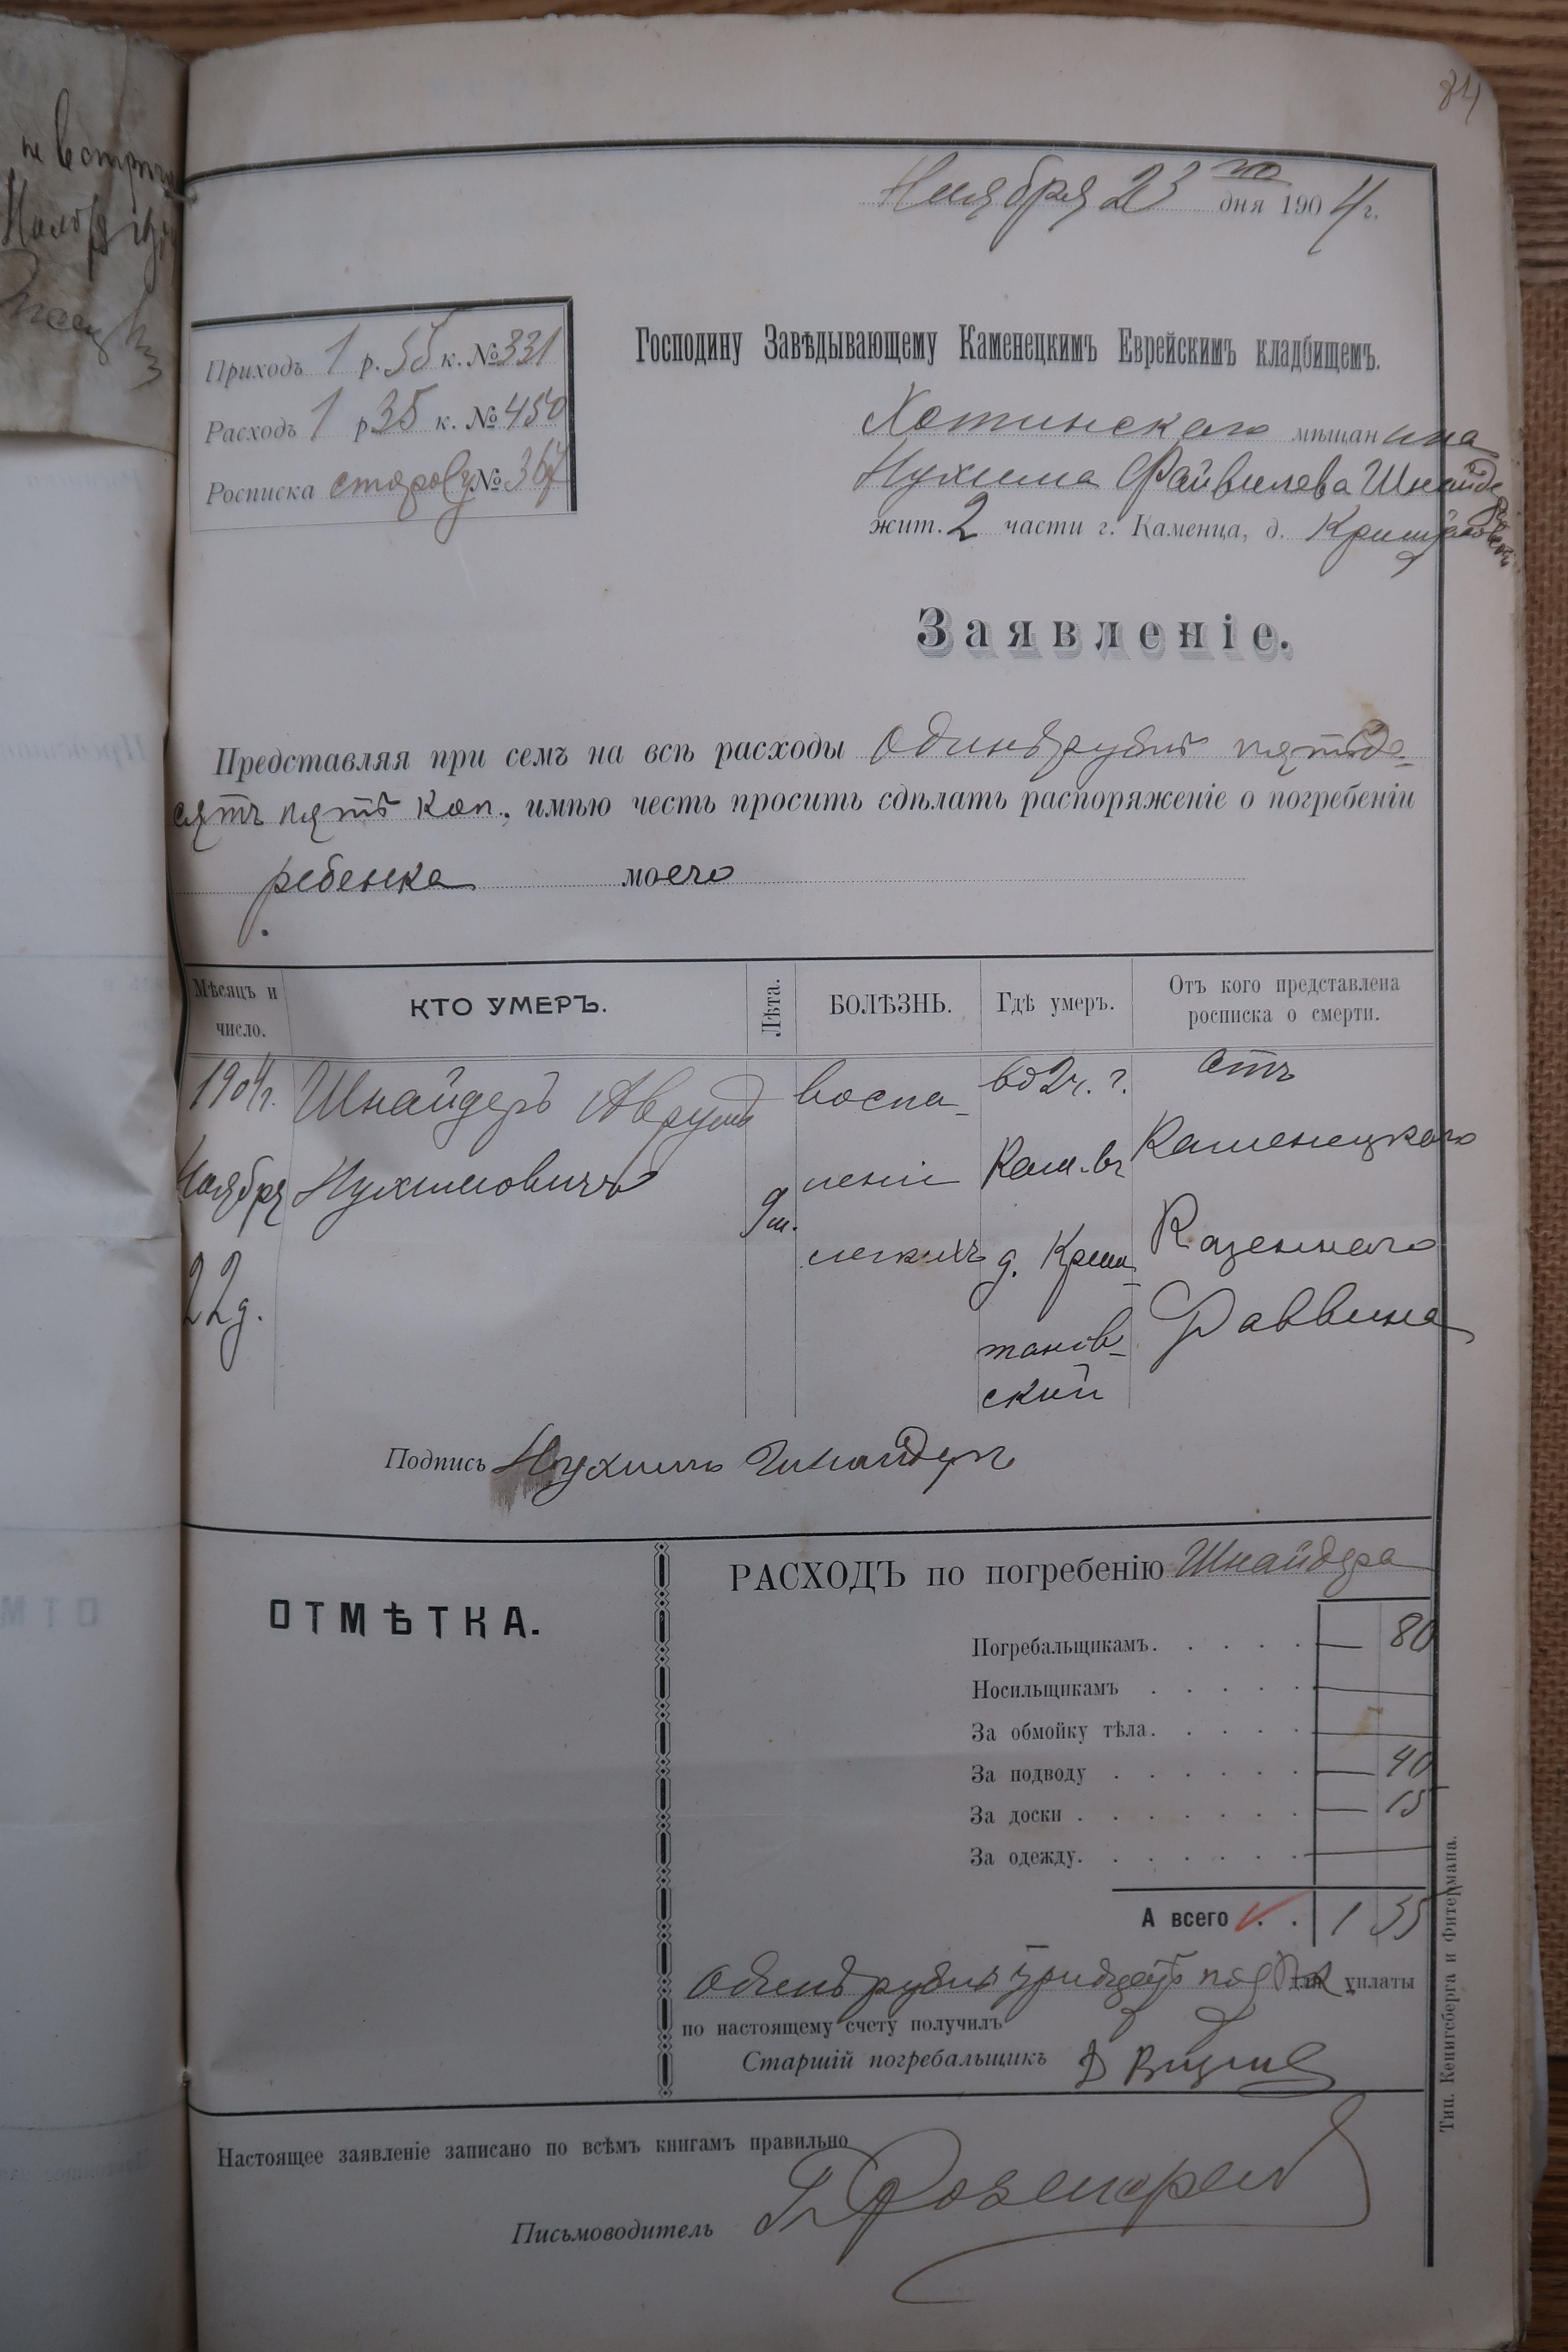 84
Ноября 23 го дня 1904 г.
Приходъ 1 р. 55 к. № 331
Расходъ 1 р 35 к. № 450
Росписка № 367
Господину Завѣдывающему Каменецкимъ Еврейскимъ кладбищемъ.
Хотинскаго мѣщанина
Нухима Файвилева Шнайдера
жит. 2 части г. Каменца, д.
Заявленіе.
Представляя при семъ на всѣ расходы одинъ рубль пятьде-
сятъ пять коп., имѣю честь просить сдѣлать распоряженіе о погребеніи
ребенка моего
Мѣсяцъ и число. КТО УМЕРЪ. Лѣта. БОЛѢЗНЬ. Гдѣ умеръ. Отъ кого представлена росписка о смерти.
1904г. Шнайдеръ Аврумъ воспа- во 2 ч. г. отъ
Ноября Нухимовичъ 9 м. леніи Кам. въ Каменецкаго
22 д. легкихъ д. Казеннаго
танов- Раввина
ский
Подпись Нухимъ Шнайдеръ
ОТМѢТКА.
РАСХОДЪ по погребенію Шнайдера
Погребальщикамъ. . . . . — 80
Носильщикамъ . . . . . —
За обмойку тѣла. . . . . —
За подводу . . . . . . — 40
За доски . . . . . . . — 15
За одежду. . . . . . . —
А всего . . 1 35
Одинъ рубль тридцать для уплаты
по настоящему счету получилъ
Старшій погребальщикъ
Настоящее заявленіе записано по всѣмъ книгамъ правильно
Письмоводитель
Тип. Кенигсберга и Фитермана.